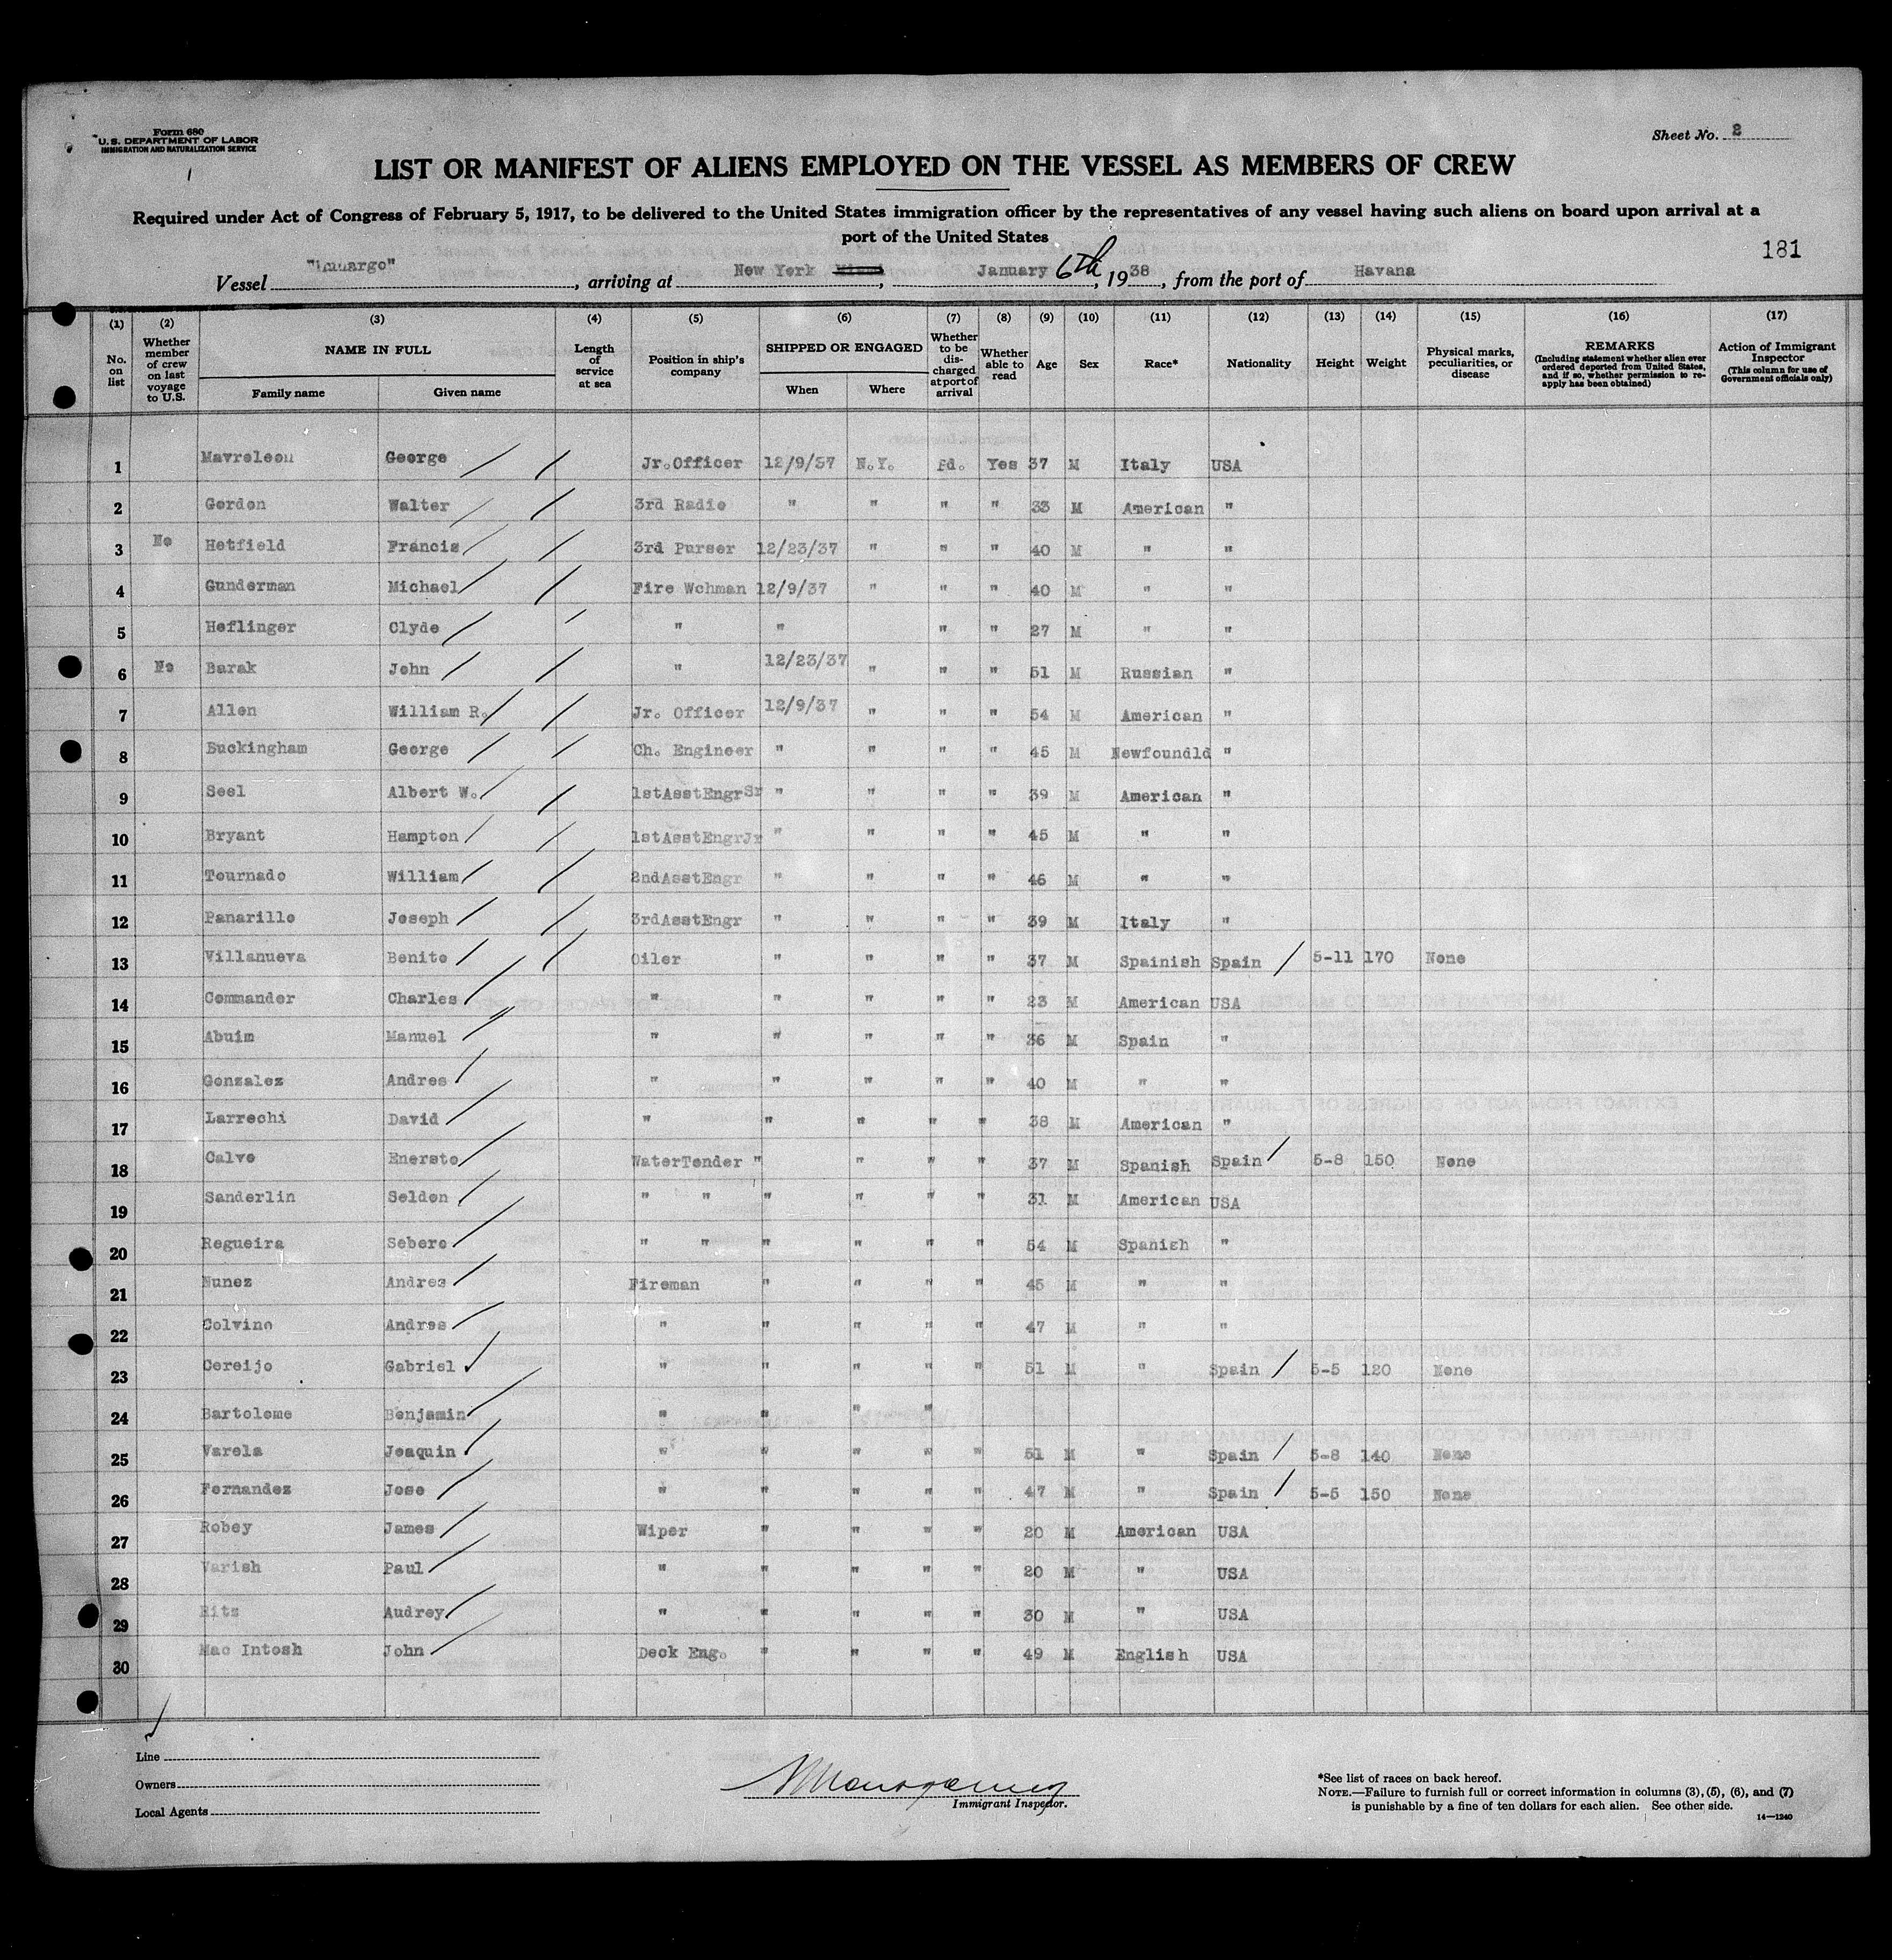 Form 680
U. S. DEPARTMENT OF LABOR
IMMIGRATION AND NATURALIZATION SERVICE
Sheet No. 2
LIST OR MANIFEST OF ALIENS EMPLOYED ON THE VESSEL AS MEMBERS OF CREW
Required under Act of Congress of February 5, 1917, to be delivered to the United States immigration officer by the representatives of any vessel having such aliens on board upon arrival at a
port of the United States
181
Vessel, arriving at New York, January 6th, 1938, from the port of Havana
(1) No. on list (2) Whether member of crew on last voyage to U.S. (3) NAME IN FULL Family name Given name (4) Length of service at sea (5) Position in ship's company (6) SHIPPED OR ENGAGED When Where (7) Whether to be discharged at port of arrival (8) Whether able to read (9) Age (10) Sex (11) Race* (12) Nationality (13) Height (14) Weight (15) Physical marks, peculiarities, or disease (16) REMARKS (Including statement whether alien ever ordered deported from United States, and if so, whether permission to reapply has been obtained) (17) Action of Immigrant Inspector (This column for use of Government officials only)
1 Mavroleon George Jr.Officer 12/9/37 N.Y. Pd. Yes 37 M Italy USA
2 Gordon Walter 3rd Radio " " " " 33 M American "
3 No Hetfield Francis 3rd Purser 12/23/37 " " " 40 M " "
4 Gunderman Michael Fire Wchman 12/9/37 " " " 40 M " "
5 Heflinger Clyde " " " " 27 M " "
6 No Barak John " 12/23/37 " " " 51 M Russian "
7 Allen William R. Jr. Officer 12/9/37 " " " 54 M American "
8 Buckingham George Ch. Engineer " " " " 45 M Newfoundld "
9 Seel Albert W. 1stAsstEngrSr " " " " 39 M American "
10 Bryant Hampton 1stAsstEngrJr " " " " 45 M " "
11 Tournade William 2ndAsstEngr " " " " 46 M " "
12 Panarillo Joseph 3rdAsstEngr " " " " 39 M Italy "
13 Villanueva Benito Oiler " " " " 37 M Spainish Spain 5-11 170 None
14 Commander Charles " " " " " 23 M American USA
15 Abuim Manuel " " " " " 36 M Spain "
16 Gonzalez Andres " " " " " 40 M " "
17 Larrechi David " " " " " 38 M American "
18 Calvo Enersto WaterTender " " " " 37 M Spanish Spain 5-8 150 None
19 Sanderlin Seldon " " " " " " 31 M American USA
20 Regueira Sebero " " " " " " 54 M Spanish "
21 Nunez Andres Fireman " " " " 45 M " "
22 Colvino Andres " " " " " 47 M " "
23 Cereijo Gabriel " " " " " 51 M " Spain 5-5 120 None
24 Bartolome Benjamin " " " "
25 Varela Joaquin " " " " " 51 M " Spain 5-8 140 None
26 Fernandez Jose " " " " " 47 M " Spain 5-5 150 None
27 Robey James Wiper " " " " 20 M American USA
28 Varish Paul " " " " " 20 M " USA
29 Ritz Audrey " " " " " 30 M " USA
30 Mac Intosh John Deck Eng. " " " " 49 M English USA
Line
Owners
Local Agents
Immigrant Inspector.
*See list of races on back hereof.
NOTE.—Failure to furnish full or correct information in columns (3), (5), (6), and (7)
is punishable by a fine of ten dollars for each alien. See other side.
14—1240